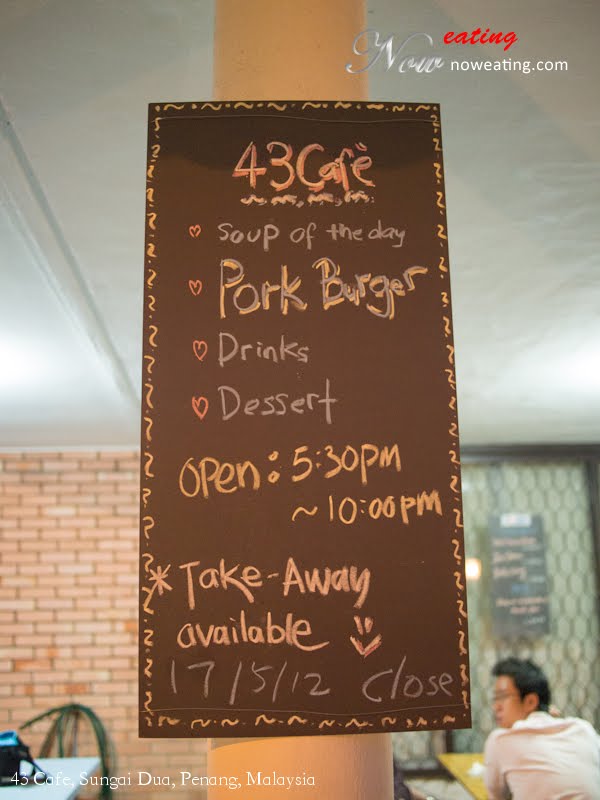 Now eating
noweating.com
43 Cafè
Soup of the day
Pork Burger
Drinks
Dessert
Open: 5:30pm
~ 10:00pm
* Take-Away
available
17/5/12 Close
43 Cafe, Sungai Dua, Penang, Malaysia